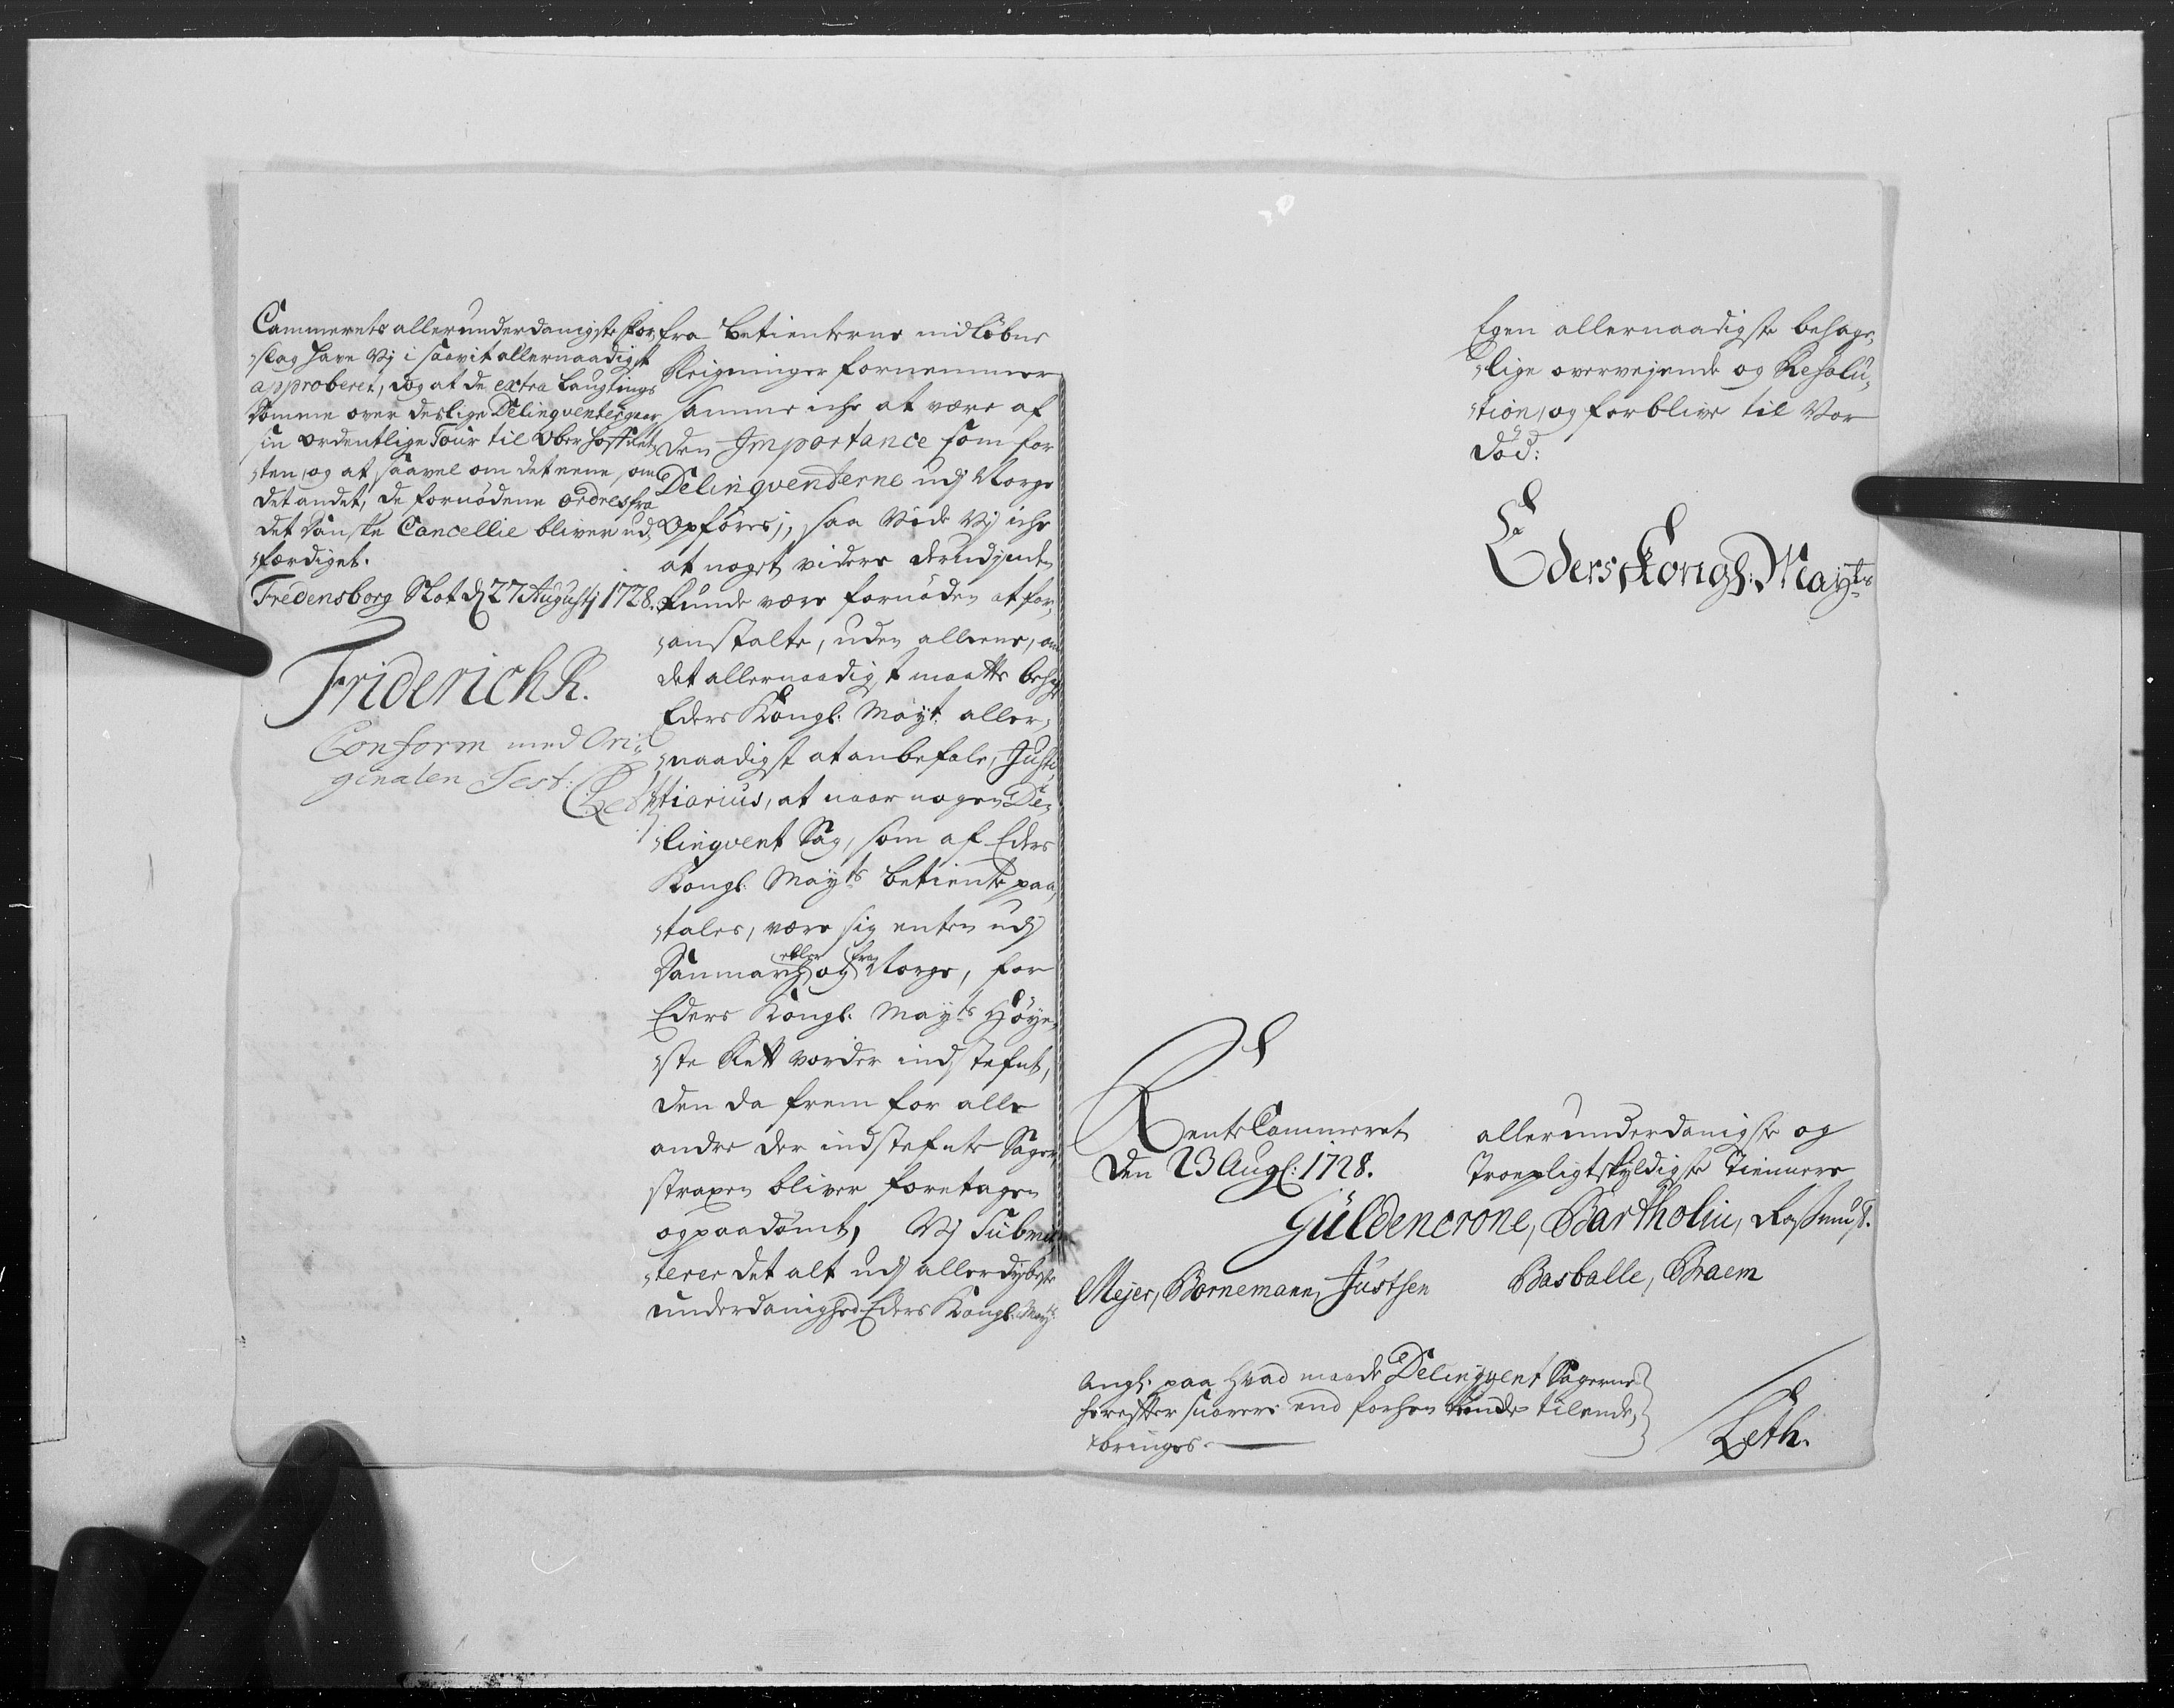 Cammerets allerunderdanigste For„
„slag have Vj i saavit allernaadigst
approberet, dog at de extra Laugtings
Domme over deslige Delinqventer gaar
sin ordentlige Tour til Ober Hoff Ret„
„ten, og at saavel om det eene, som
det andet, de fornødene ordres fra
det Danske Cancellie bliver ud„
„færdiget.
Fredensborg Slot d 27 Augustj 1728.
Friderich R.
Conform med Ori„
ginalen Test:
Leth
fra betienterne indløbne
Reigninger fornemmer
samme iche at være af
den Importance som for
Delinqventerne udj Norge
opføres; saa Vide Vj iche
at noget videre derudjinden
kunde være fornøden at for„
„anstalte, uden alleene, om
det allernaadigst maatte behage
Eders Kongl: Mayt: aller„
„naadigst at anbefale, Justi„
„tiarius, at naar nogen De„
„linqvent Sag, som af Eders
Kongl: Mayts betiente paa„
„tales, være sig enten udj
Danmarch eller og fra Norge, for
Eders Kongl: Mayts Høye„
„ste Rett vorder indstefnt,
den da frem for alle
andre der indstefnte Sager,
straxen bliver foretagen
og paadømt, Vj Submit„
„terer det alt udj allerdybeste
underdanighed Eders Kongl: Mayts
Egen allernaadigste behage„
„lige overvejende og Resolu„
„tion, og forblive til Vor
død:
Eders Kongl: Mayts
Rente Cammeret
den 23 Aug: 1728.
allerunderdanigste og
Troepligtskyldigste Tiennere
Güldencrone, Bartholin, Rasmus.
Meyer, Bornemann, Justsen Basballe, Braem
Angl: paa hvad maade Delinqvent Sagerne
herefter snarere end forhen kunde tilende„
„bringes.
Leth.